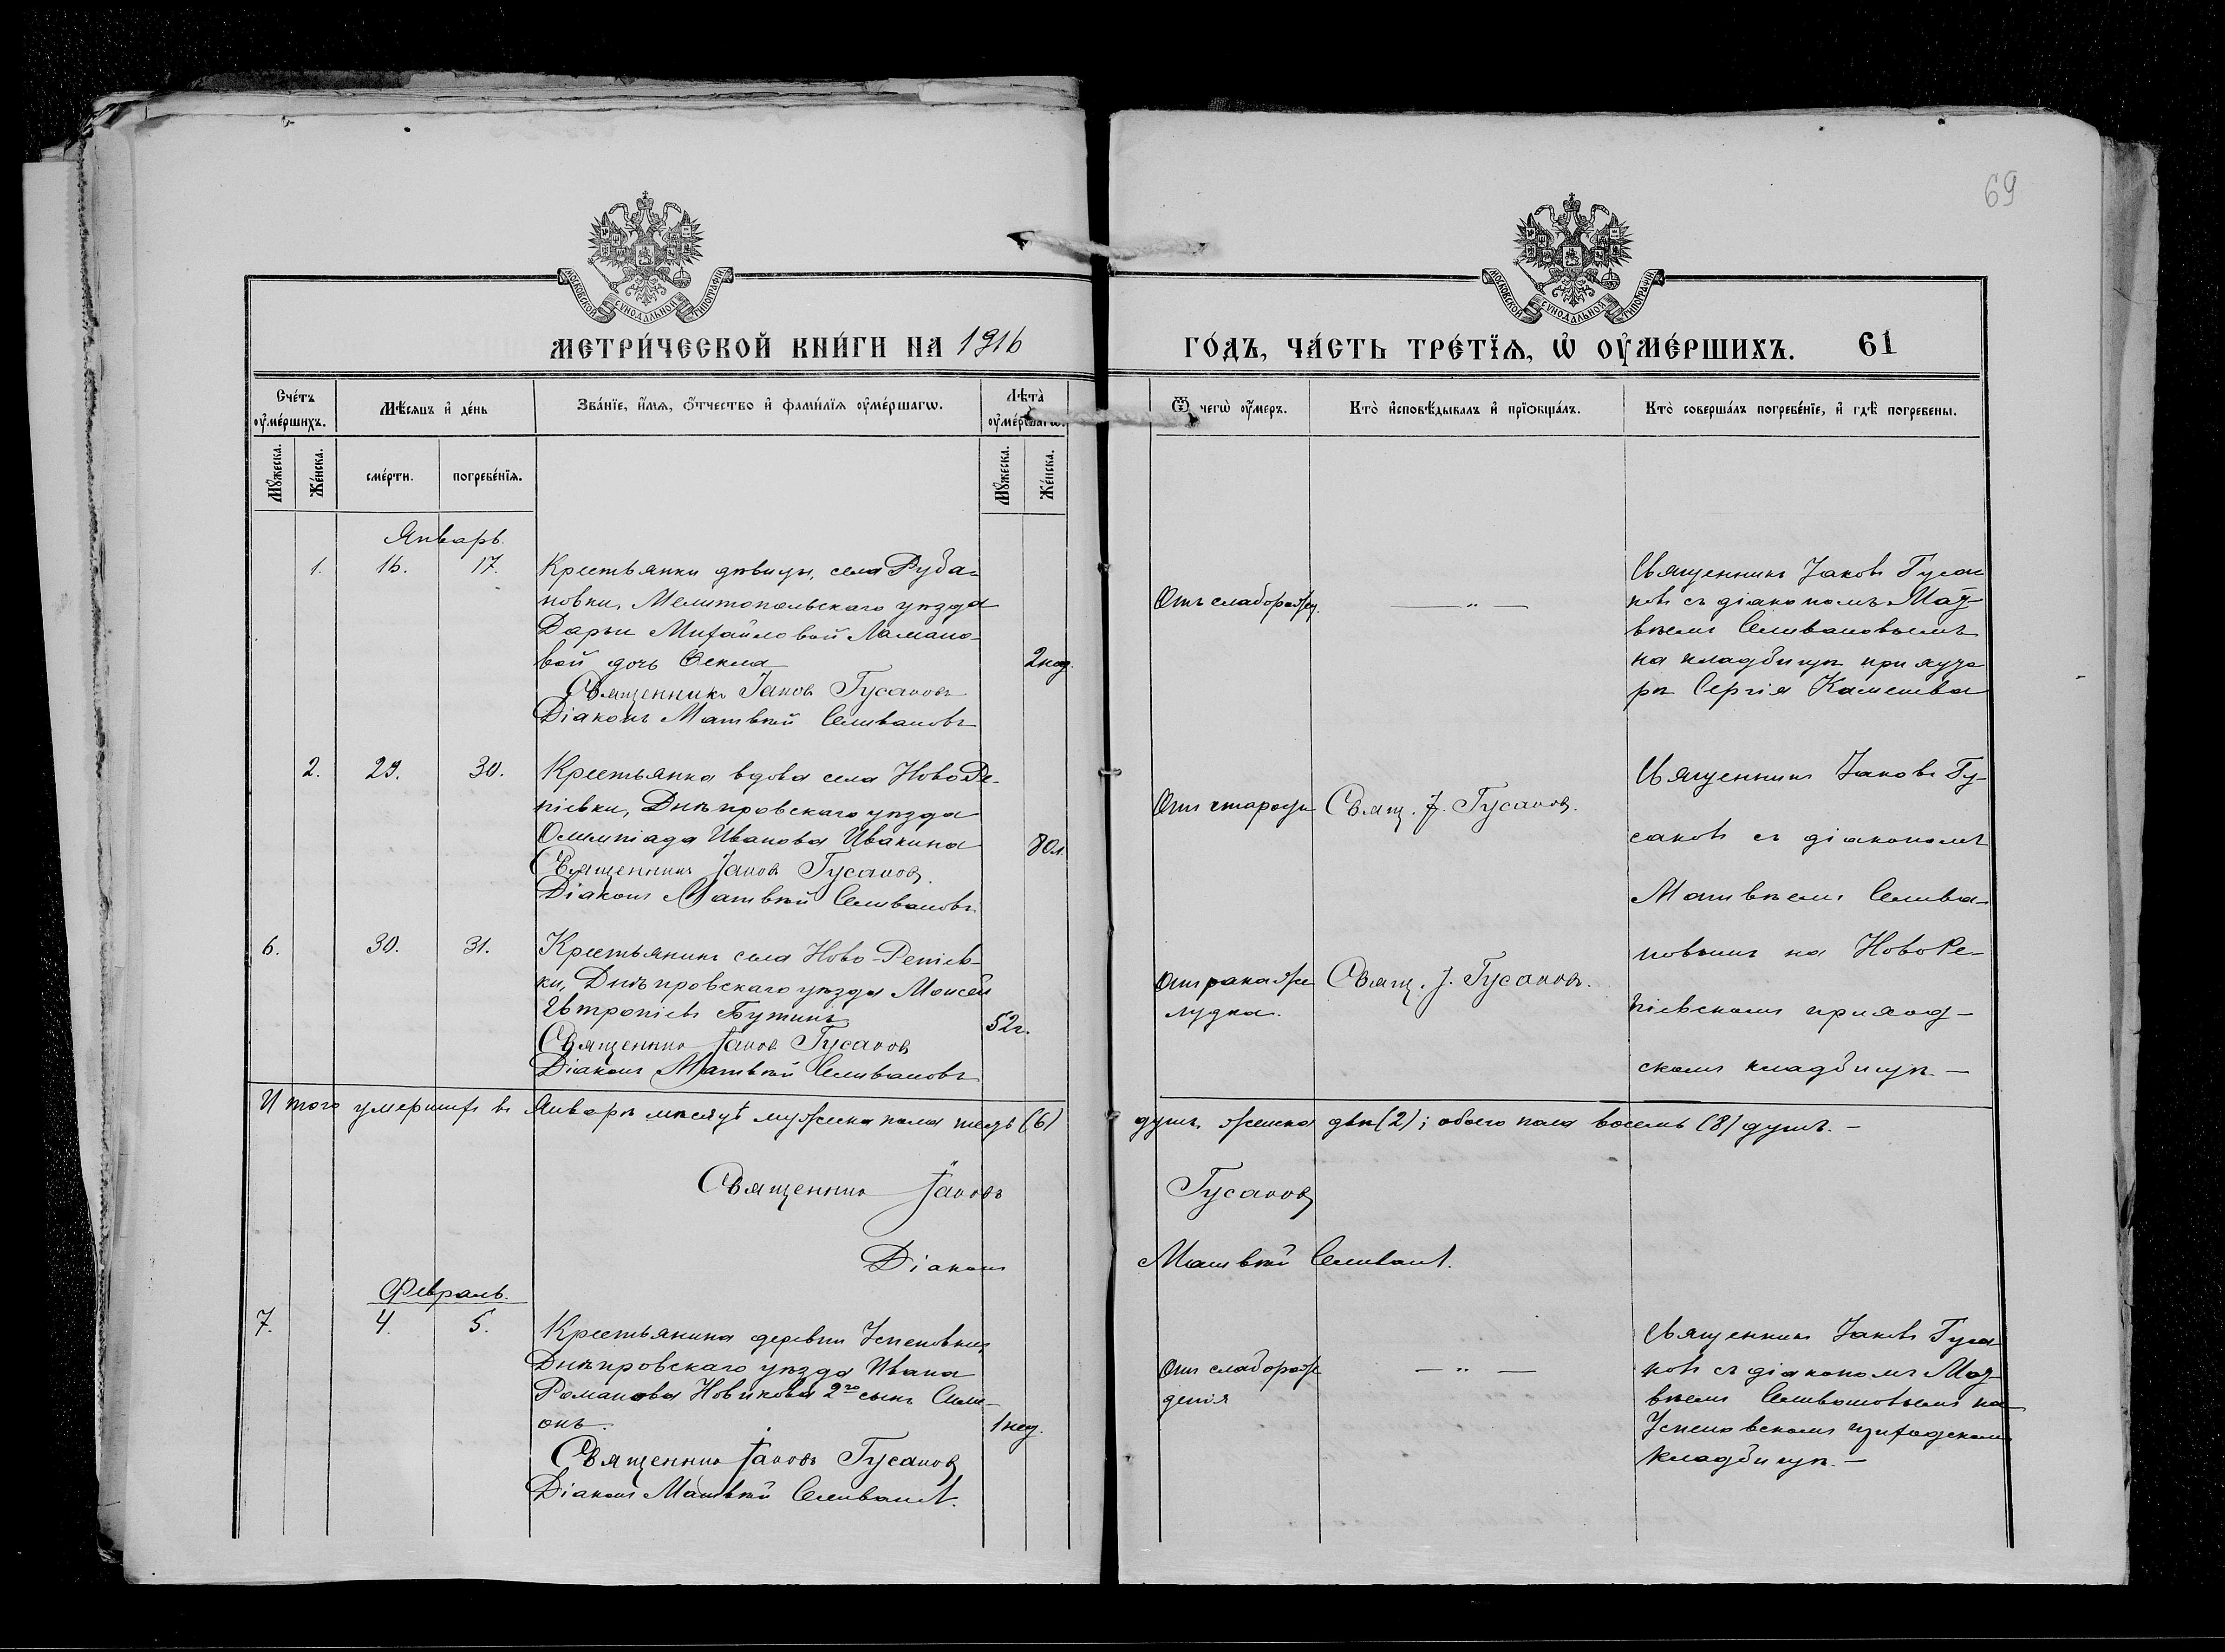 69
МОСКОВСКОЙ СУНОДАЛЬНОЙ ТИПОГРАФІИ
МОСКОВСКОЙ СУНОДАЛЬНОЙ ТИПОГРАФІИ
МЕТРИ́ЧЕСКОЙ КНИ́ГИ НА 1916
ГО́ДЪ, ЧА́СТЬ ТРЕ́ТЇѦ, Ѡ҆ ОУ҆МЕ́РШИХЪ. 61
Сче́тъ оу҆ме́ршихъ.
Мѣ́сѧцъ и҆ де́нь
Зва́нїе, и҆́мѧ, ѻ҆́тчество и҆ фами́лїѧ оу҆ме́ршагѡ.
Лѣ́та̀ оу҆ме́ршагѡ.
Ѿ чегѡ̀ оу҆́меръ.
Кто̀ и҆сповѣ́дывалъ и҆ прїѡбща́лъ.
Кто̀ соверша́лъ погребе́нїе, и҆ гдѣ̀ погребены.
Мꙋ́жеска.
Же́нска.
сме́рти.
погребе́нїѧ.
Мꙋ́жеска.
Же́нска.
Январь.
1. 16. 17. Крестьянки дѣвицы, села Руба-
новки, Мелитопольскаго уѣзда
Дарьи Михайловой Ламано-
вой дочь Ѳекла 2 нед.
Священникъ Іаковъ Гусаковъ
Діаконъ Матвѣй Селивановъ
Отъ слаборожд.
— „ —
Священникъ Іаковъ Гуса-
ковъ съ діакономъ Мат-
вѣемъ Селивановымъ
на кладбищѣ при хуто-
рѣ Сергія Камешва
2. 29. 30. Крестьянка вдова села НовоРе-
піевки, Днѣпровскаго уѣзда
Олимпіада Иванова Ивакина 80 л.
Священникъ Іаковъ Гусаковъ.
Діаконъ Матвѣй Селивановъ.
Отъ старости
Свящ. І. Гусаковъ.
Священникъ Іаковъ Гу-
саковъ съ діакономъ
Матвѣемъ Селива-
новымъ на НовоРе-
піевскомъ приход-
скомъ кладбищѣ. —
6. 30. 31. Крестьянинъ села Ново-Репіев-
ки, Днѣпровскаго уѣзда Моисей
Евтропіевъ Бутинъ 52 г.
Священникъ Іаковъ Гусаковъ
Діаконъ Матвѣй Селивановъ
Отъ рака же-
лудка.
Свящ. І. Гусаковъ.
Итого умершихъ въ Январѣ мѣсяцѣ мужеска пола шесть (6)
душъ, женска двѣ (2); обоего пола восемь (8) душъ. —
Священникъ Іаковъ Гусаковъ
Діаконъ Матвѣй Селивановъ.
Февраль.
7. 4. 5. Крестьянина деревни Успеновки,
Днѣпровскаго уѣзда Ивана
Романова Новикова 2го сынъ Симе-
онъ 1 нед.
Священникъ Іаковъ Гусаковъ
Діаконъ Матвѣй Селивановъ.
Отъ слаборож-
денія
— „ —
Священникъ Іаковъ Гуса-
ковъ съ діакономъ Мат-
вѣемъ Селивановымъ на
Успеновскомъ приходскомъ
кладбищѣ. —